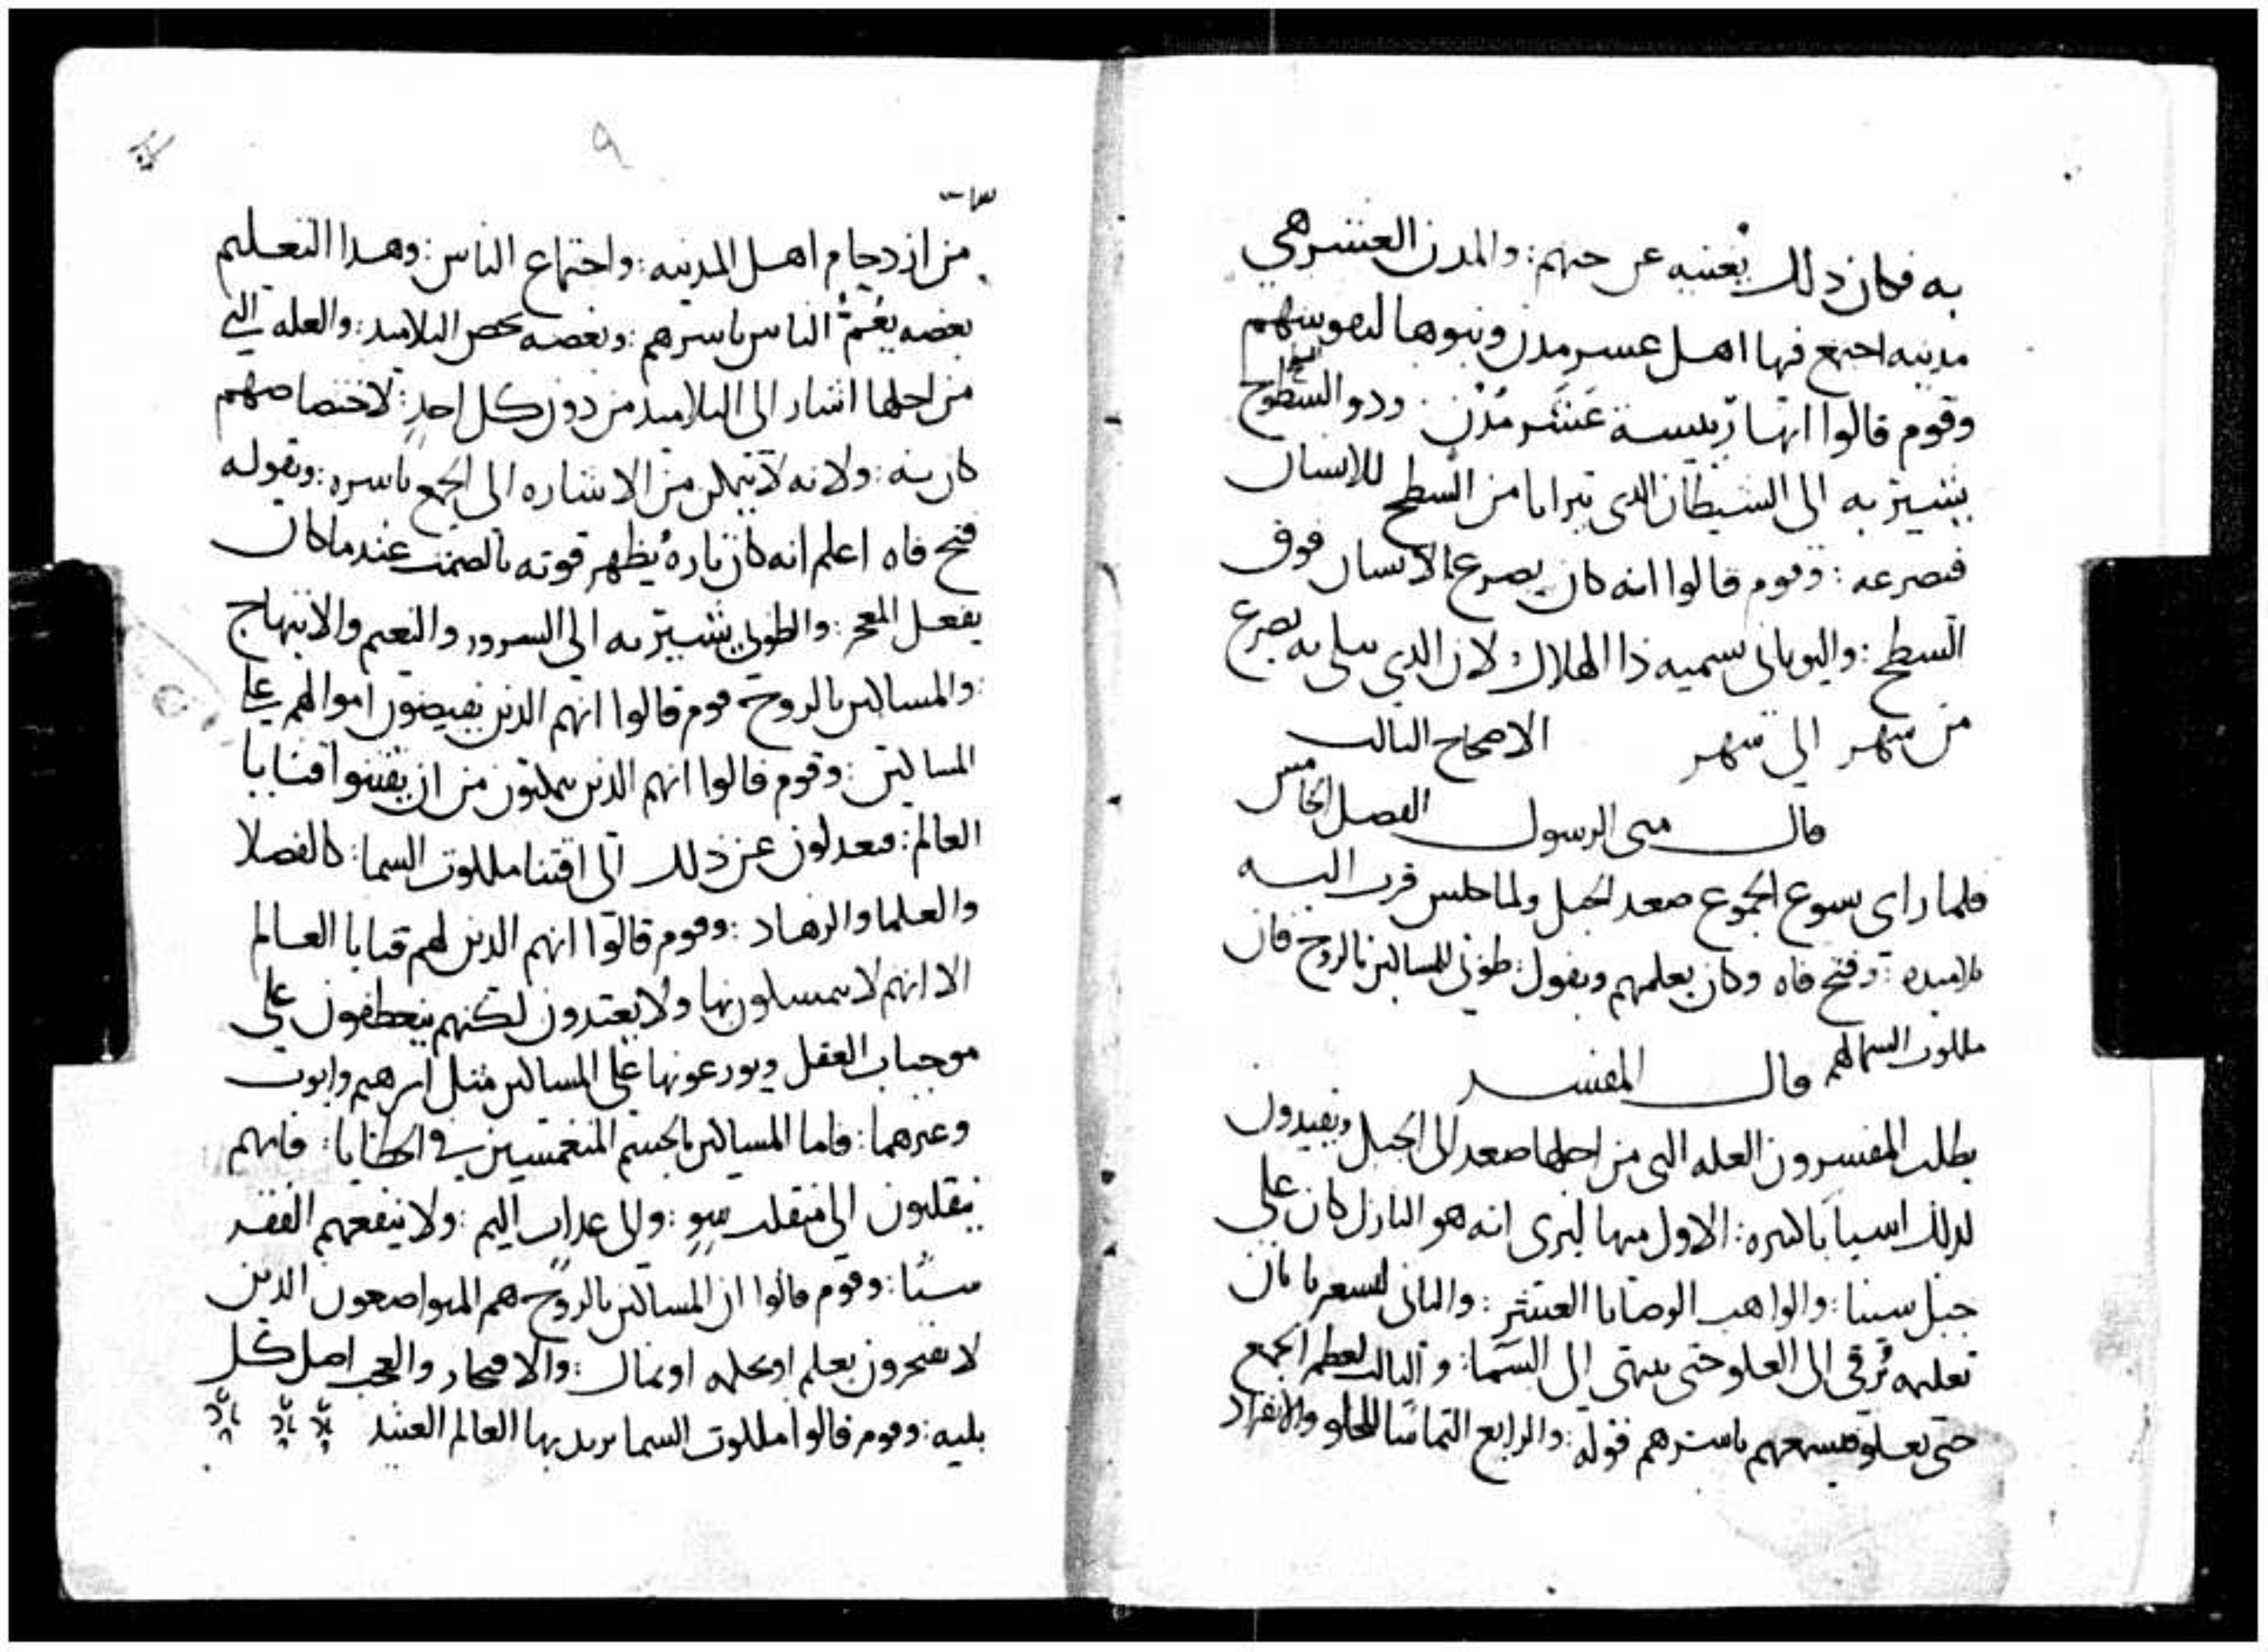 به فكان ذلك يغنيه عن حثهم: والمدن العشر هي
مدينه اجتمع فيها اهل عسر مدن وبنوها لتهوينهم
وقوم قالوا انها رييسة عَشَر مُدُن. وذو السطوح
يشير به الى الشيطان الدى يترايا من السطح للانسان
فيصرعه: وقوم قالوا انه كان يصرع الانسان فوق
السطح: واليونانى يسميه ذا الهلال لان الدي يبلى به يصرع
من شهر الي شهر الاصحاح الثالث
قال متى الرسول الفصل الخامس
فلما راى يسوع الجموع صعد الجبل ولما جلس قرب اليه
تلاميده: وفتح فاه وكان يعلمهم ويقول: طوبي للمساكين بالروح فان
ملكوت السما لهم قال المفسر
يطلب المفسرون العله التي من اجلها صعد الى الجبل ويفيدون
لدلك اسبابا كثيره: الاول منها ليرى انه هو النازل كان علي
جبل سينا: والواهب الوصايا العشر: والثانى ليشعرنا بان
تعليمه يُرقي الى العلو حتى ينتهي الى السَّما: والثالث لعظم الجمع
حتى يعلو فيسمعهم باسرهم قوله: والرابع التماسًا للخلو والانفراد
من ازدحام اهل المدينه: واجتماع الناس: وهدا التعليم
بعضه يَعُمّ الناس باسرهم: وبعضه يخص التلاميد: والعله التي
من اجلها اشار الى التلاميد من دون كل احدٍ: لاختصاصهم
كان به: ولانه لا يتمكن من الاشاره الى الجمع باسره: وبقوله
فتح فاه اعلم انه كان تارة يُظهر قوته بالصمت عند ما كان
يفعل المعجز: والطوبي يشير به الي السرور والنعيم والابتهاج
: والمساكين بالروح قوم قالوا انهم الدين يفيضون اموالهم علي
المساكين: وقوم قالوا انهم الدين يمكنون من ان يقتنوا قنايا
العالم: فيعدلون عن ذلك الى اقتنا ملكوت السما: كالفضلا
والعلما والزهاد: وقوم قالوا انهم الدين لهم قنايا العالم
الا انهم لا يتمسكون بها ولا يعتدون لكنهم ينعطفون علي
موجبات العقل ويوزعونها علي المساكين مثل ابرهيم وايوب
وغيرهما: فاما المساكين بالجسم المنغمسين في الخطايا: فانهم
ينقلبون الى منقلب سوٍ: والى عداب اليم: ولا ينفعهم الفقر
شيئًا: وقوم قالوا ان المساكين بالروح هم المتواضعون الدين
لا يفتخرون بعلم او بحكمه او بمال: والافتخار والعجب اصل كل
بليه: وقوم قالوا ملكوت السما يريد بها العالم العتيد